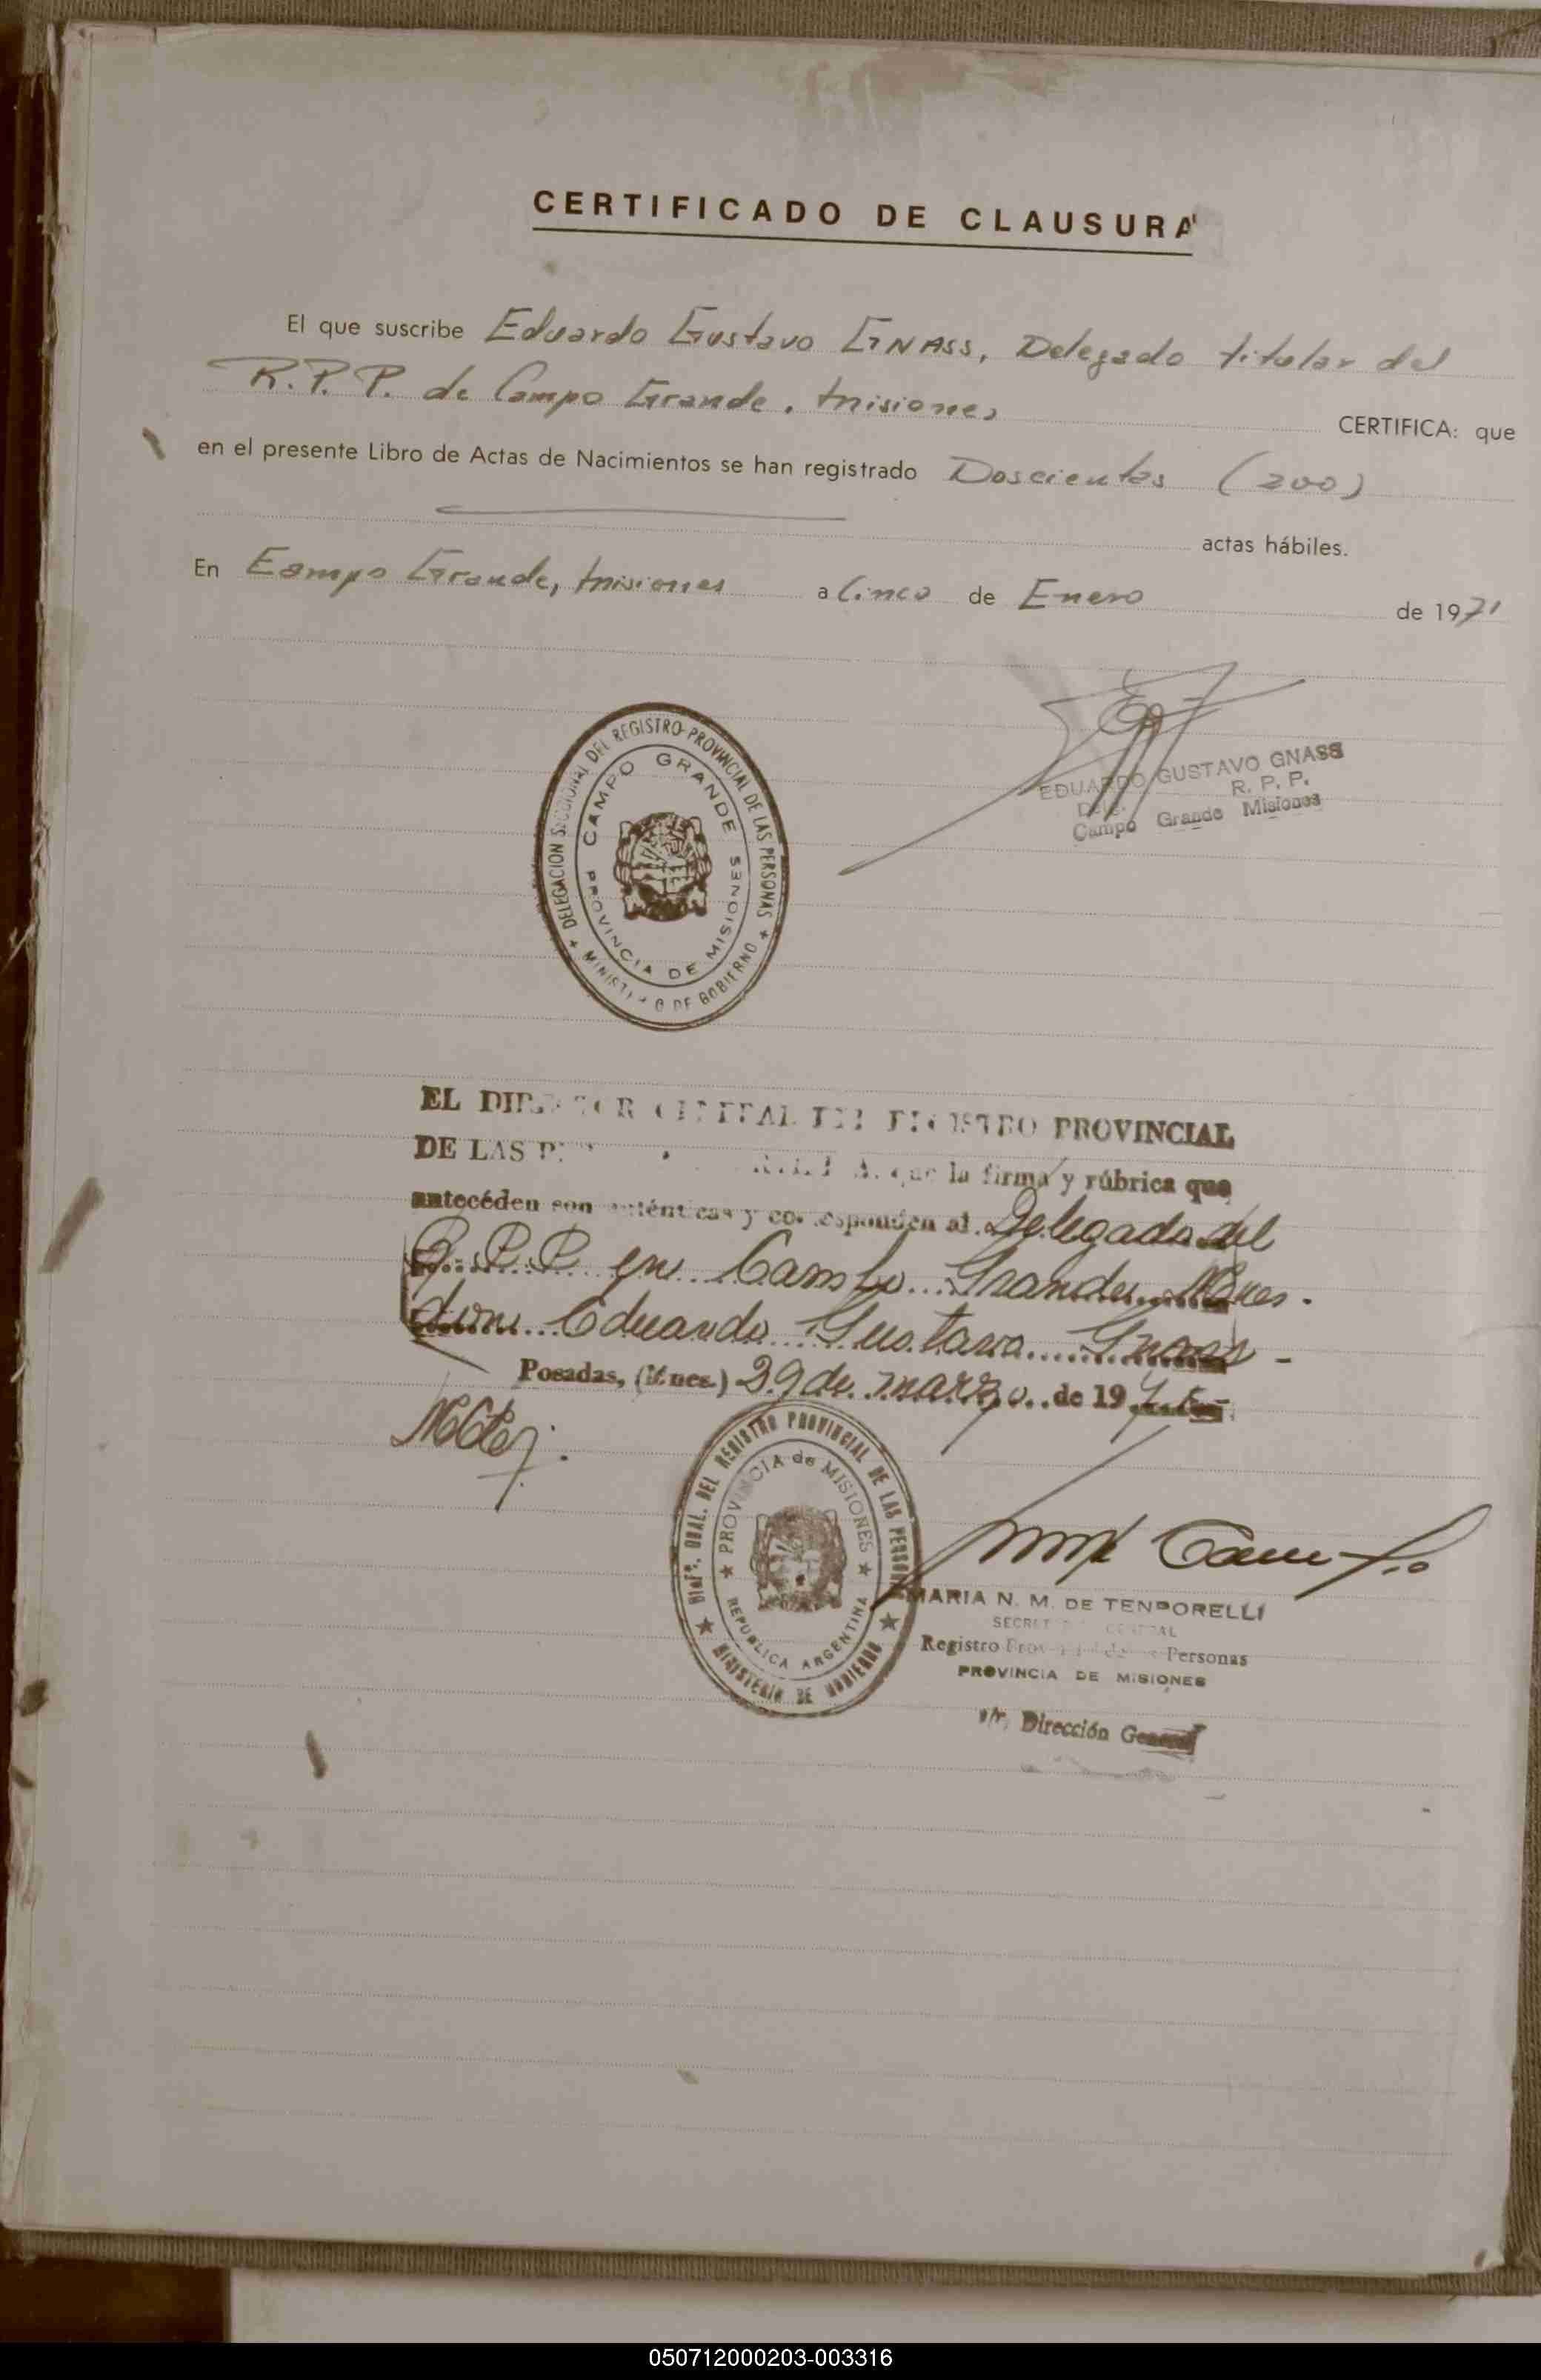 CERTIFICADO DE CLAUSURA
El que suscribe Eduardo Gustavo GNASS, Delegado titular del
R.P.P. de Campo Grande. Misiones CERTIFICA: que
en el presente Libro de Actas de Nacimientos se han registrado Doscientas (200)
actas hábiles.
En Campo Grande, Misiones a Cinco de Enero de 1971
DELEGACION SECCIONAL DEL REGISTRO PROVINCIAL DE LAS PERSONAS
CAMPO GRANDE
PROVINCIA DE MISIONES
MINISTERIO DE GOBIERNO
EDUARDO GUSTAVO GNASS
R. P. P.
Campo Grande Misiones
EL DIRECTOR GENERAL DEL REGISTRO PROVINCIAL
DE LAS que la firma y rúbrica que
antecéden son auténticas y corresponden al Delegado del
R.P.P. en Campo Grande, Mnes.
don Eduardo Gustavo Gnass -
Posadas, (Mnes.) 29 de marzo de 19
DEL REGISTRO PROVINCIAL DE LAS PERSONAS
PROVINCIA de MISIONES
REPUBLICA ARGENTINA
MINISTERIO DE GOBIERNO
MARIA N. M. DE TEMPORELLI
Registro Personas
PROVINCIA DE MISIONES
Dirección General
050712000203-003316